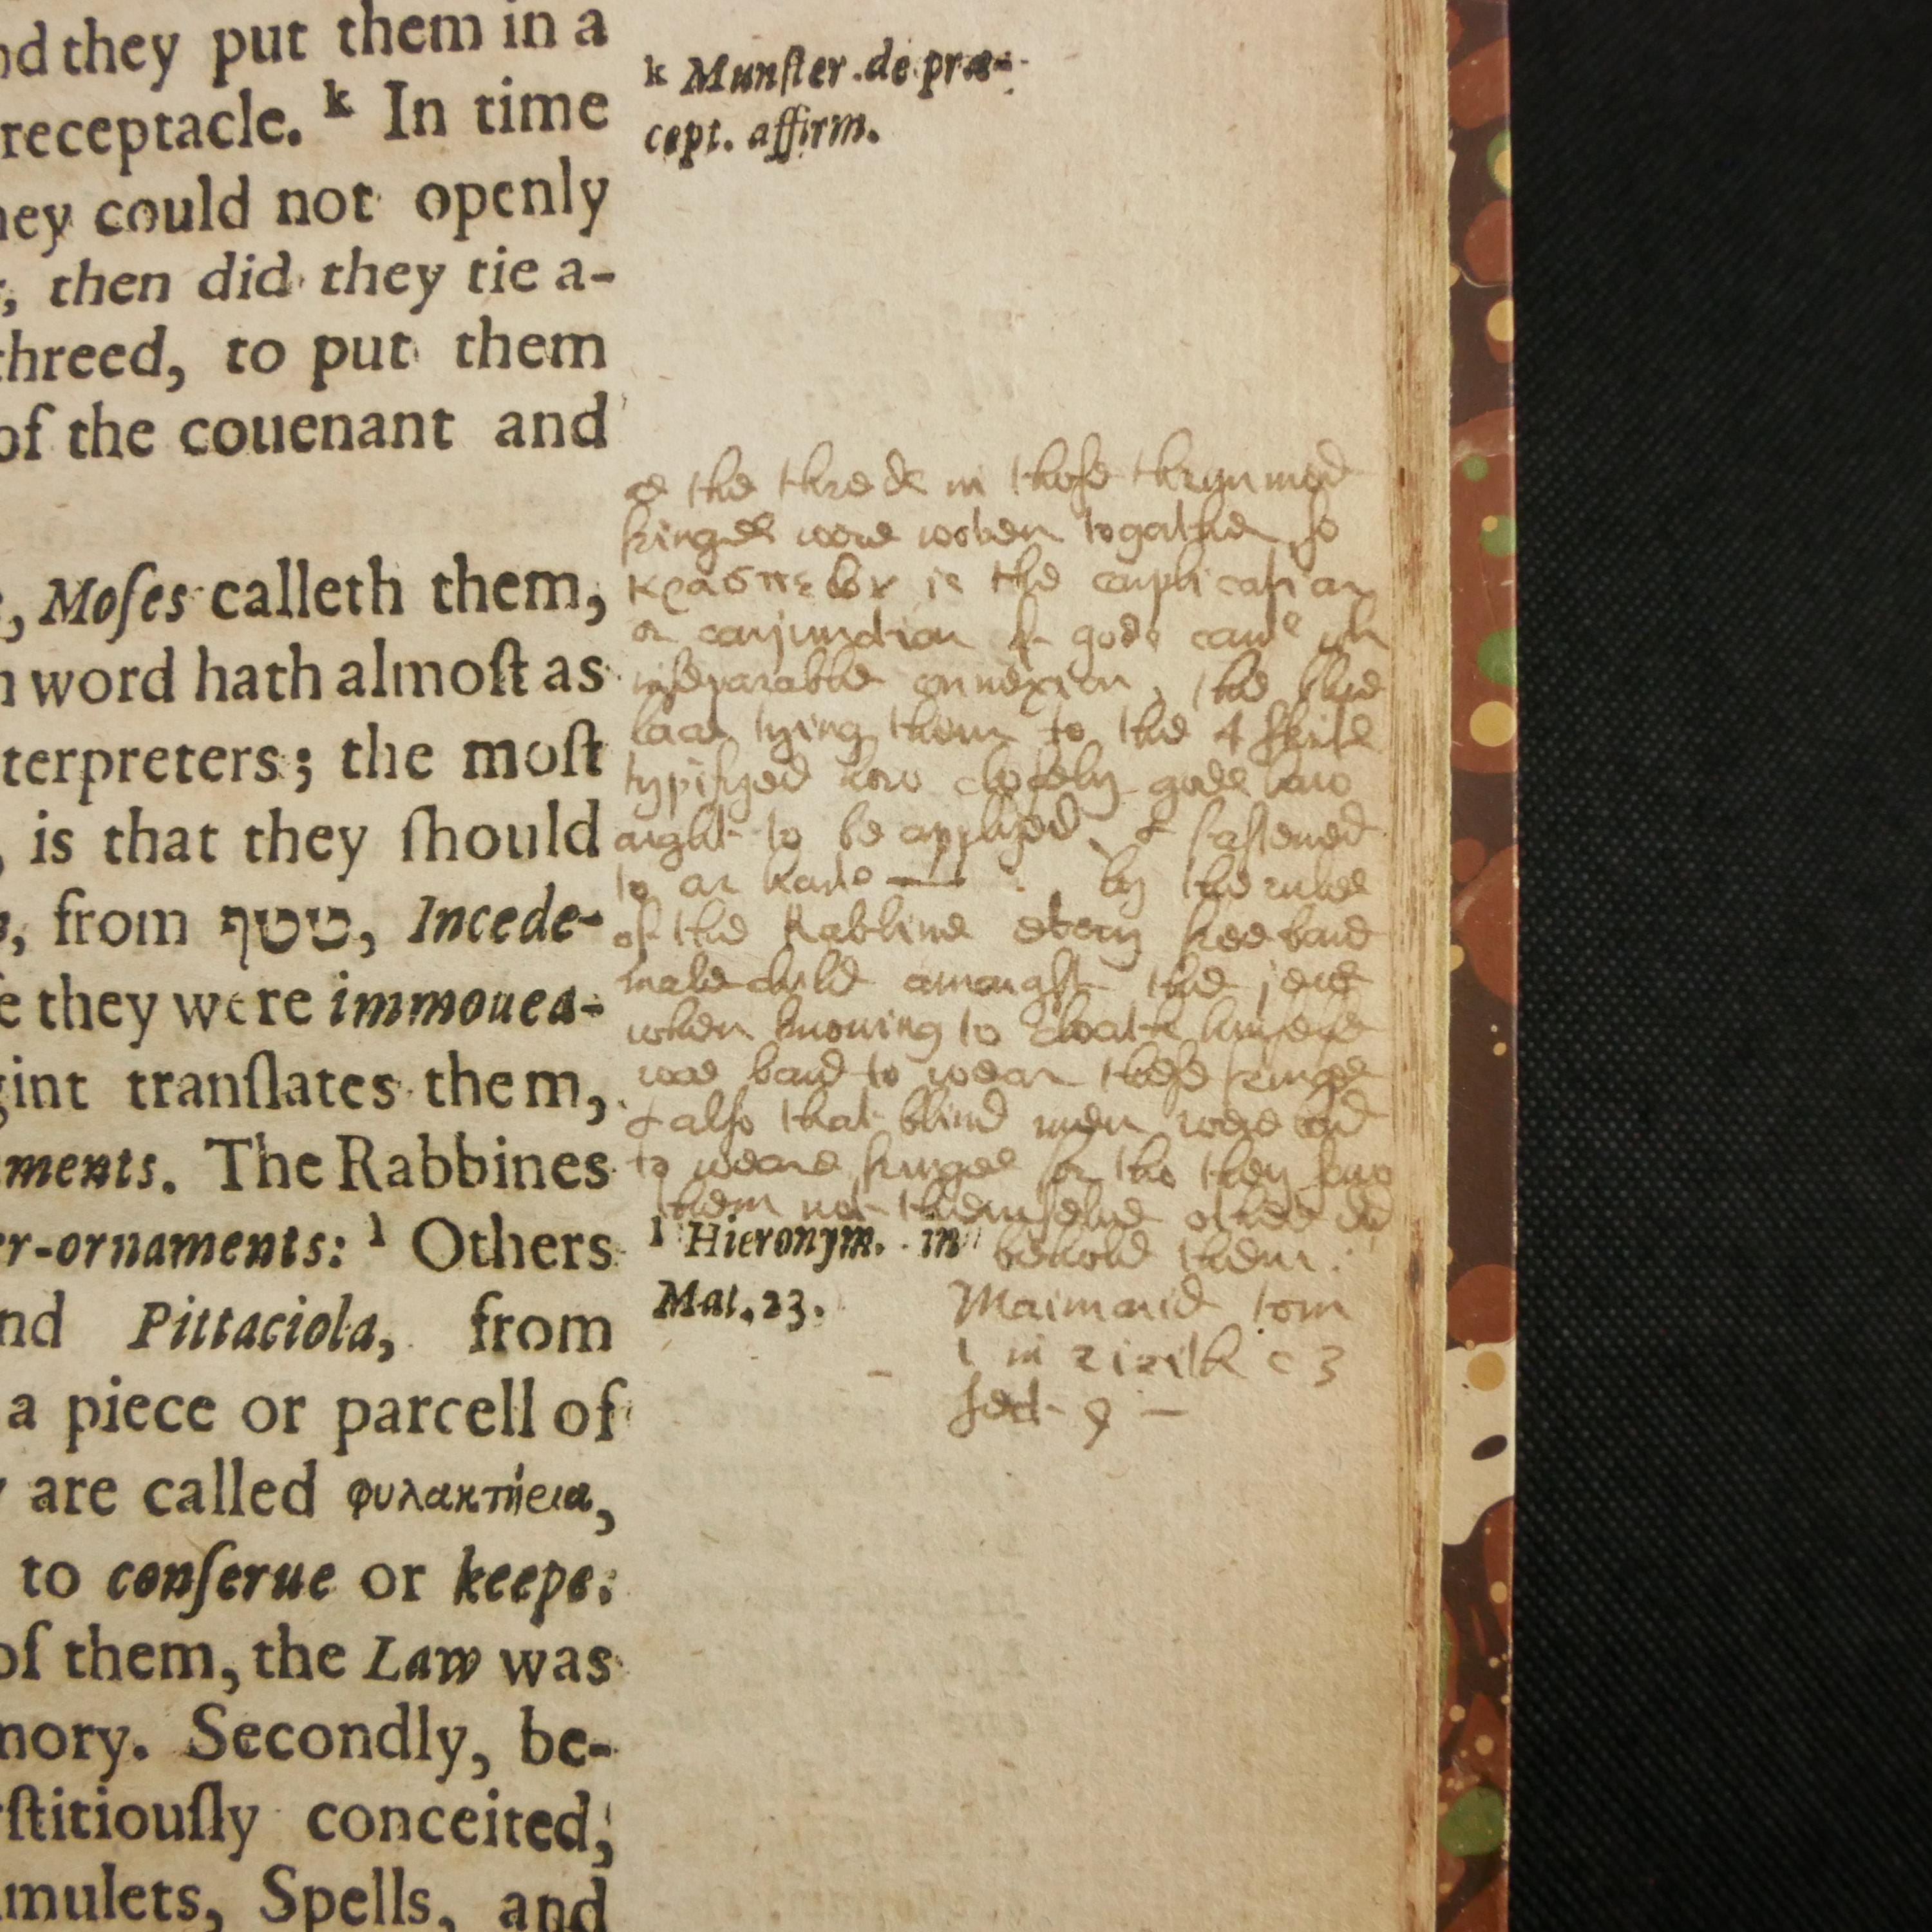 nd they put them in a
receptacle. k In time
hey could not openly
, then did they tie a-
threed, to put them
of the couenant and
, Moſes calleth them,
word hath almoſt as
terpreters; the moſt
, is that they ſhould
, from טטף, Incede-
e they were immouea-
gint tranſlates them,
ments. The Rabbines
er-ornaments: l Others
nd Pittaciola, from
a piece or parcell of
are called φυλακτήρια,
to conſerue or keepe:
of them, the Law was
mory. Secondly, be-
ſtitiouſly conceited,
mulets, Spells, and
k Munſter. de præ-
cept. affirm.
as the threde in thoſe
fringes were woven togather ſo
is the
or conjunction of gods
inſeparable connexion, the blue
lace tying them to the 4 ſkirts
typifyed how cloſely gods law
ought to be applyed & faſtened
to or harts — by the rules
of the Rabbins every free
male child amongſt the jews
when knowing to cloath himſelfe
was baud to wear theſe fringes
& alſo that blind men were
to weare fringes for tho they ſaw
them not themſelves others did
behold them:
l Hieronym. in
Mat. 23.
Maimonid tom
1 in zizith c 3
ſect 9 —